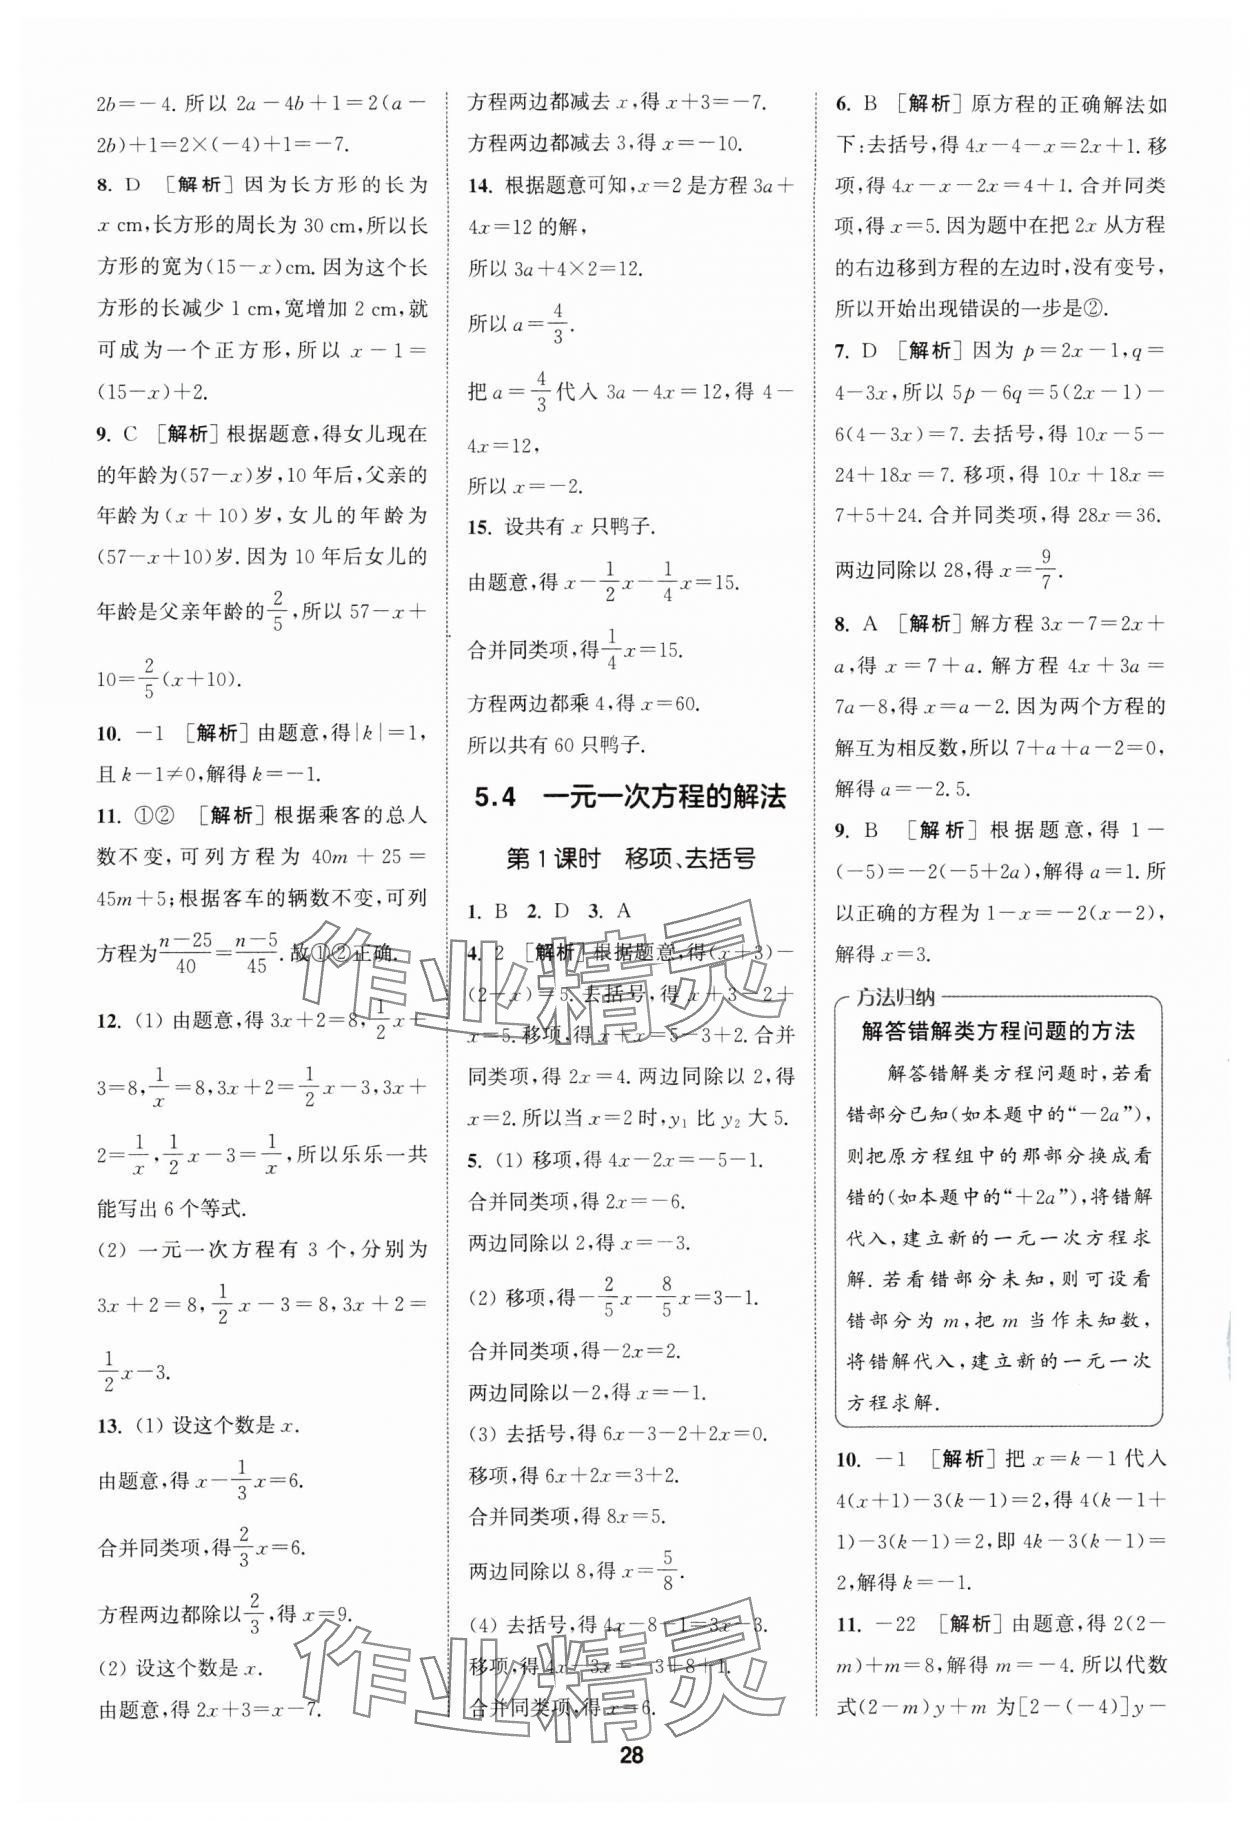 2b=-4. 所以 2a-4b+1=2(a-
2b)+1=2×(-4)+1=-7.
8. D [解析]因为长方形的长为
x cm,长方形的周长为 30 cm,所以长
方形的宽为(15-x)cm. 因为这个长
方形的长减少 1 cm,宽增加 2 cm,就
可成为一个正方形,所以 x-1=
(15-x)+2.
9. C [解析]根据题意,得女儿现在
的年龄为(57-x)岁,10 年后,父亲的
年龄为(x+10)岁,女儿的年龄为
(57-x+10)岁. 因为 10 年后女儿的
年龄是父亲年龄的2/5,所以 57-x+
10=2/5(x+10).
10. -1 [解析]由题意,得|k|=1,
且 k-1≠0,解得 k=-1.
11. ①② [解析]根据乘客的总人
数不变,可列方程为 40m+25=
45m+5;根据客车的辆数不变,可列
方程为(n-25)/40=(n-5)/45. 故①②正确.
12. (1) 由题意,得 3x+2=8,1/2x+
3=8,1/x=8,3x+2=1/2x-3,3x+
2=1/x,1/2x-3=1/x,所以乐乐一共
能写出 6 个等式.
(2) 一元一次方程有 3 个,分别为
3x+2=8,1/2x-3=8,3x+2=
1/2x-3.
13. (1) 设这个数是 x.
由题意,得 x-1/3x=6.
合并同类项,得2/3x=6.
方程两边都除以2/3,得 x=9.
(2) 设这个数是 x.
由题意,得 2x+3=x-7.
方程两边都减去 x,得 x+3=-7.
方程两边都减去 3,得 x=-10.
14. 根据题意可知,x=2 是方程 3a+
4x=12 的解,
所以 3a+4×2=12.
所以 a=4/3.
把 a=4/3代入 3a-4x=12,得 4-
4x=12,
所以 x=-2.
15. 设共有 x 只鸭子.
由题意,得 x-1/2x-1/4x=15.
合并同类项,得1/4x=15.
方程两边都乘 4,得 x=60.
所以共有 60 只鸭子.
5.4 一元一次方程的解法
第 1 课时 移项、去括号
1. B 2. D 3. A
4. 2 [解析]根据题意,得(x+3)-
(2-x)=5. 去括号,得 x+3-2+
x=5. 移项,得 x+x=5-3+2. 合并
同类项,得 2x=4. 两边同除以 2,得
x=2. 所以当 x=2 时,y₁ 比 y₂ 大 5.
5. (1) 移项,得 4x-2x=-5-1.
合并同类项,得 2x=-6.
两边同除以 2,得 x=-3.
(2) 移项,得-2/5x-8/5x=3-1.
合并同类项,得-2x=2.
两边同除以-2,得 x=-1.
(3) 去括号,得 6x-3-2+2x=0.
移项,得 6x+2x=3+2.
合并同类项,得 8x=5.
两边同除以 8,得 x=5/8.
(4) 去括号,得 4x-8-1=3x-3.
移项,得 4x-3x=-3+8+1.
合并同类项,得 x=6.
6. B [解析]原方程的正确解法如
下:去括号,得 4x-4-x=2x+1. 移
项,得 4x-x-2x=4+1. 合并同类
项,得 x=5. 因为题中在把 2x 从方程
的右边移到方程的左边时,没有变号,
所以开始出现错误的一步是②.
7. D [解析]因为 p=2x-1,q=
4-3x,所以 5p-6q=5(2x-1)-
6(4-3x)=7. 去括号,得 10x-5-
24+18x=7. 移项,得 10x+18x=
7+5+24. 合并同类项,得 28x=36.
两边同除以 28,得 x=9/7.
8. A [解析]解方程 3x-7=2x+
a,得 x=7+a. 解方程 4x+3a=
7a-8,得 x=a-2. 因为两个方程的
解互为相反数,所以 7+a+a-2=0,
解得 a=-2.5.
9. B [解析]根据题意,得 1-
(-5)=-2(-5+2a),解得 a=1. 所
以正确的方程为 1-x=-2(x-2),
解得 x=3.
方法归纳
解答错解类方程问题的方法
解答错解类方程问题时,若看
错部分已知(如本题中的“-2a”),
则把原方程组中的那部分换成看
错的(如本题中的“+2a”),将错解
代入,建立新的一元一次方程求
解. 若看错部分未知,则可设看
错部分为 m,把 m 当作未知数,
将错解代入,建立新的一元一次
方程求解.
10. -1 [解析]把 x=k-1 代入
4(x+1)-3(k-1)=2,得 4(k-1+
1)-3(k-1)=2,即 4k-3(k-1)=
2,解得 k=-1.
11. -22 [解析]由题意,得 2(2-
m)+m=8,解得 m=-4. 所以代数
式(2-m)y+m 为[2-(-4)]y-
作业精灵
作业精灵
28